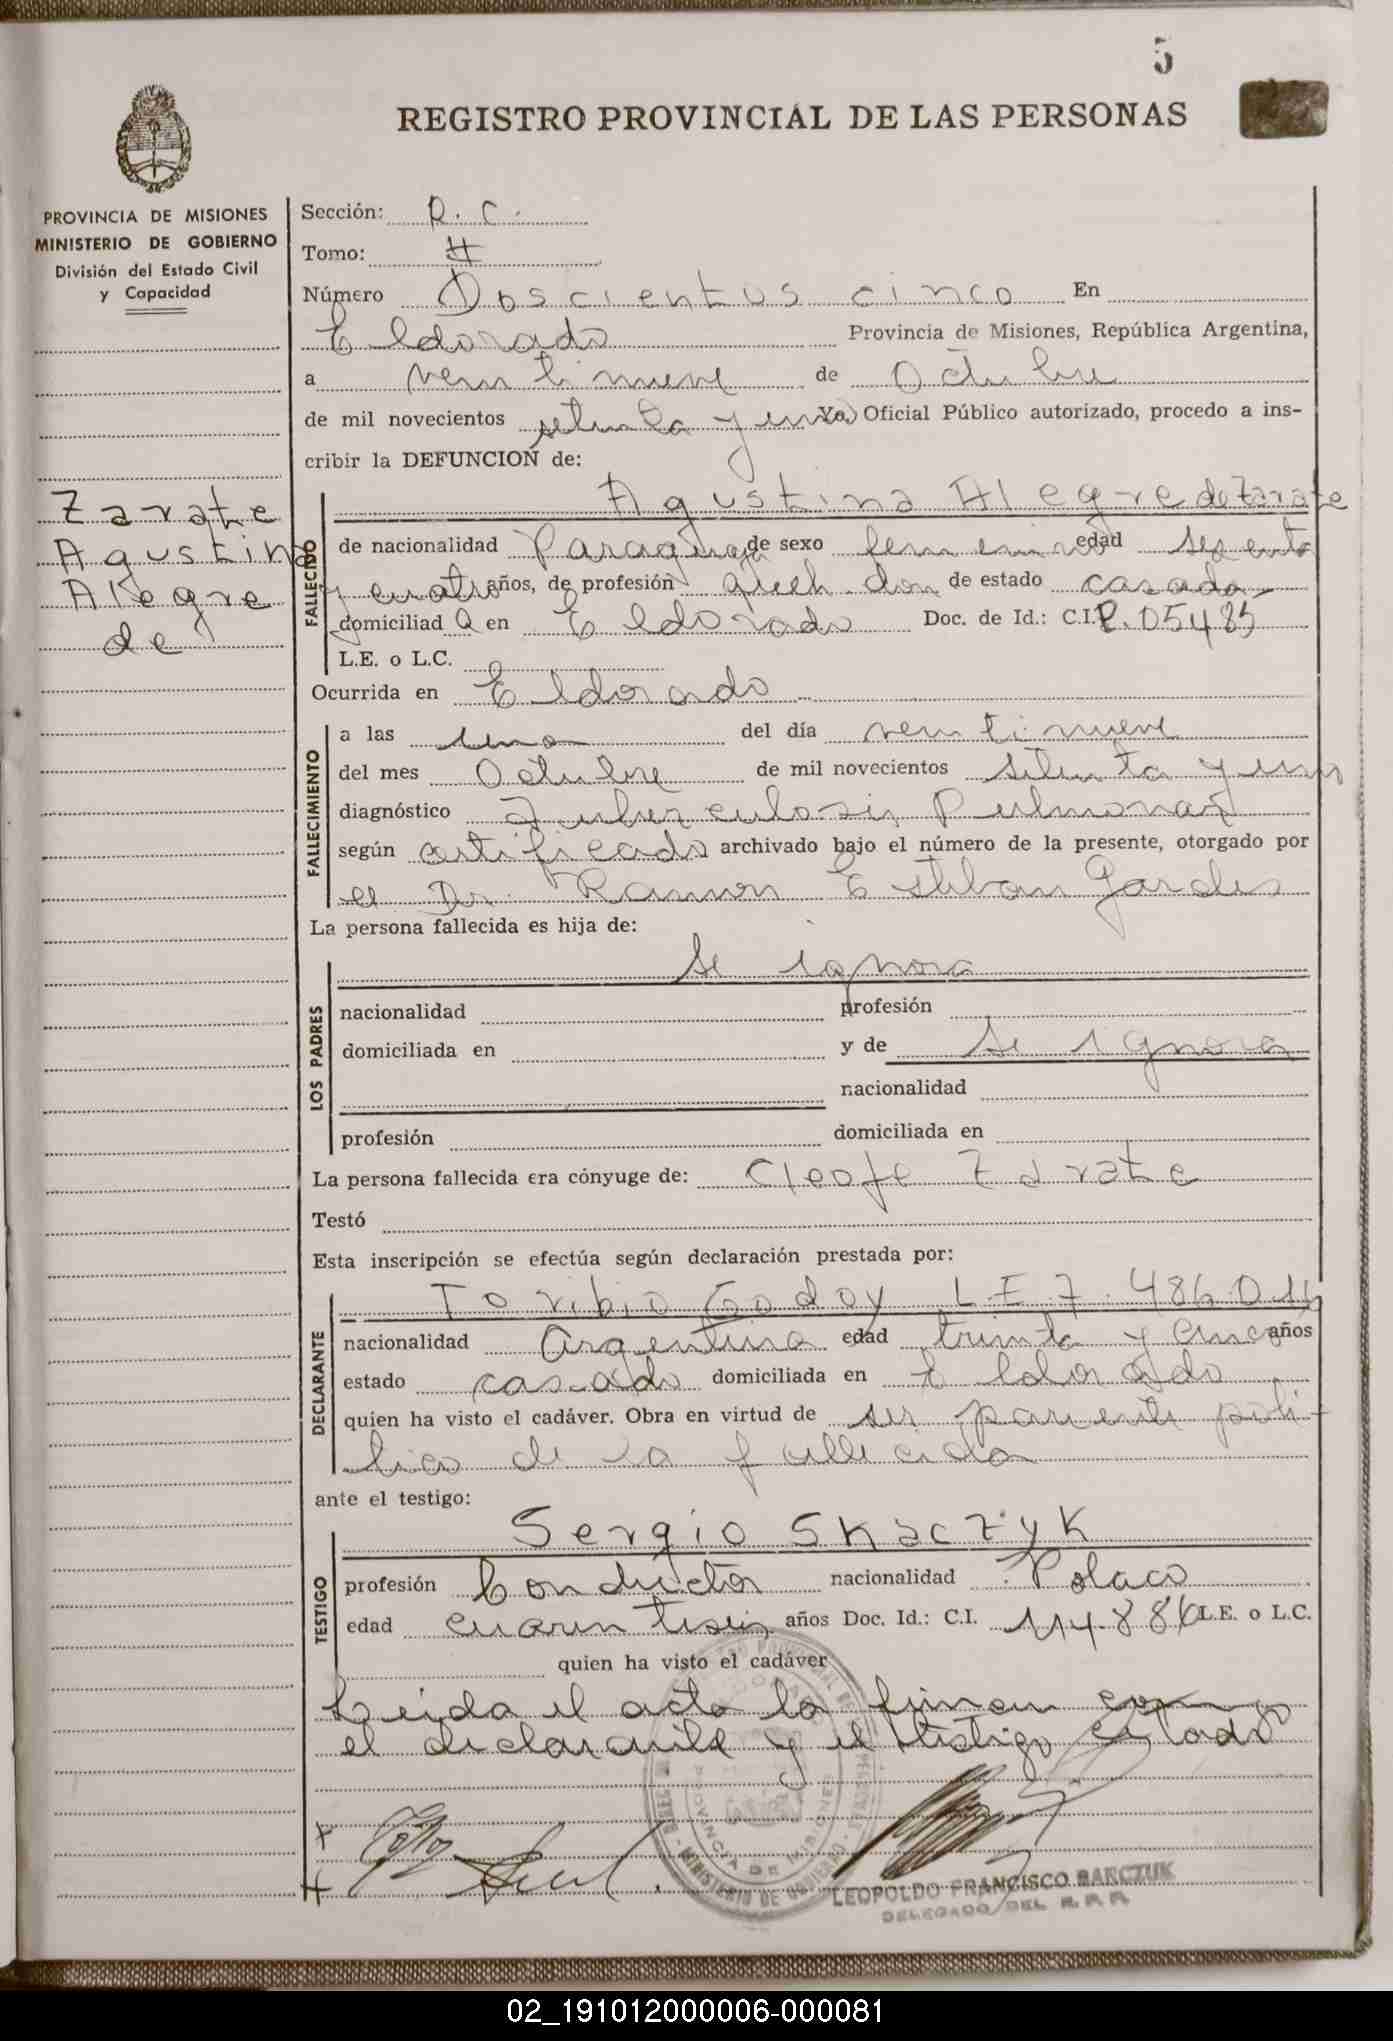 5
REGISTRO PROVINCIAL DE LAS PERSONAS
PROVINCIA DE MISIONES
MINISTERIO DE GOBIERNO
División del Estado Civil
y Capacidad
Zarate
Agustina
Alegre
de
Sección: R. C.
Tomo: II
Número Doscientos cinco En
Eldorado Provincia de Misiones, República Argentina,
a veintinueve de Octubre
de mil novecientos setenta y uno Yo, Oficial Público autorizado, procedo a ins-
cribir la DEFUNCION de:
FALLECIDO
Agustina Alegre de Zarate
de nacionalidad Paraguaya de sexo femenino edad sesenta
y cuatro años, de profesión queh. dom de estado casada
domiciliad a en Eldorado Doc. de Id.: C.I. P.05485
L.E. o L.C.
Ocurrida en Eldorado
FALLECIMIENTO
a las una del día veintinueve
del mes Octubre de mil novecientos setenta y uno
diagnóstico Tuberculosis Pulmonar
según certificado archivado bajo el número de la presente, otorgado por
el Dr. Ramon Esteban Gardes
La persona fallecida es hija de:
LOS PADRES
Se ignora
nacionalidad profesión
domiciliada en y de Se ignora
nacionalidad
profesión domiciliada en
La persona fallecida era cónyuge de: Cleofe Zarate
Testó
Esta inscripción se efectúa según declaración prestada por:
DECLARANTE
Toribio Godoy L E 7.486.014
nacionalidad Argentina edad treinta y cinco años
estado casado domiciliada en Eldorado
quien ha visto el cadáver. Obra en virtud de ser pariente polí-
tico de la fallecida
ante el testigo:
TESTIGO
Sergio Skaczyk
profesión Conductor nacionalidad Polaco
edad cuarentiseis años Doc. Id.: C.I. 114.886 L.E. o L.C.
quien ha visto el cadáver
Leida el acta la firman conmigo
el declarante y el testigo citado
LEOPOLDO FRANCISCO BARCZUK
DELEGADO DEL R. P. P.
02_191012000006-000081